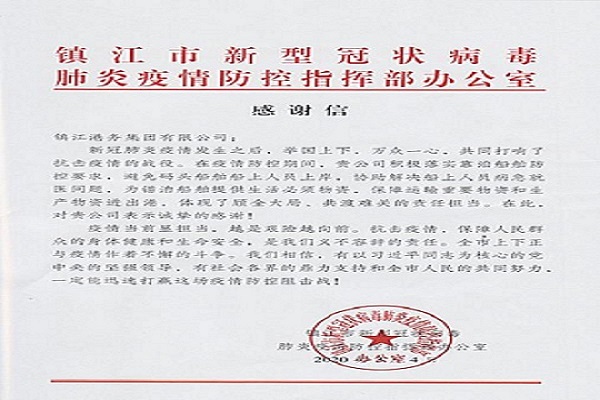 镇江市新型冠状病毒
肺炎疫情防控指挥部办公室
感谢信
镇江港务集团有限公司：
新冠肺炎疫情发生之后，举国上下，万众一心，共同打响了
抗击疫情的战役。在疫情防控期间，贵公司积极落实靠泊船舶防
控要求，避免码头船舶船上人员上岸，协助解决船上人员病急就
医问题，为锚泊船舶提供生活必须物资，保障运输重要物资和生
产物资进出港，体现了顾全大局、共渡难关的责任担当。在此，
对贵公司表示诚挚的感谢！
疫情当前显担当，越是艰险越向前。抗击疫情，保障人民群
众的身体健康和生命安全，是我们义不容辞的责任。全市上下正
与疫情作着不懈的斗争。我们相信，有以习近平同志为核心的党
中央的坚强领导，有社会各界的鼎力支持和全市人民的共同努力，
一定能迅速打赢这场疫情防控阻击战！
镇江市新型冠状病毒
肺炎疫情防控指挥部办公室
2020 4
办公室